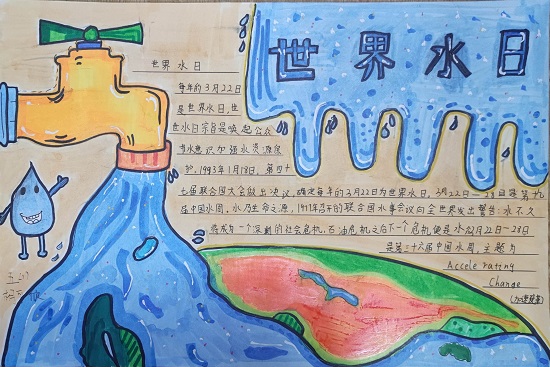 世界水日
世界水日
每年的3月22日
是世界水日,世
世水日宗旨是唤起公众
节水意识加强水资源保
护。1993年1月18日,第四十
七届联合国大会做出决议,确定每年的3月22日为世界水日。3月22日—28日是第
届中国水周。水乃生命之源,1977年召开的联合国水事会议向全世界发出警告:水不久
将成为一个深刻的社会危机,石油危机之后下一个危机便是水。3月22日—28日
是第三十六届中国水周,主题为
Accelerating
Change
(加速变革)